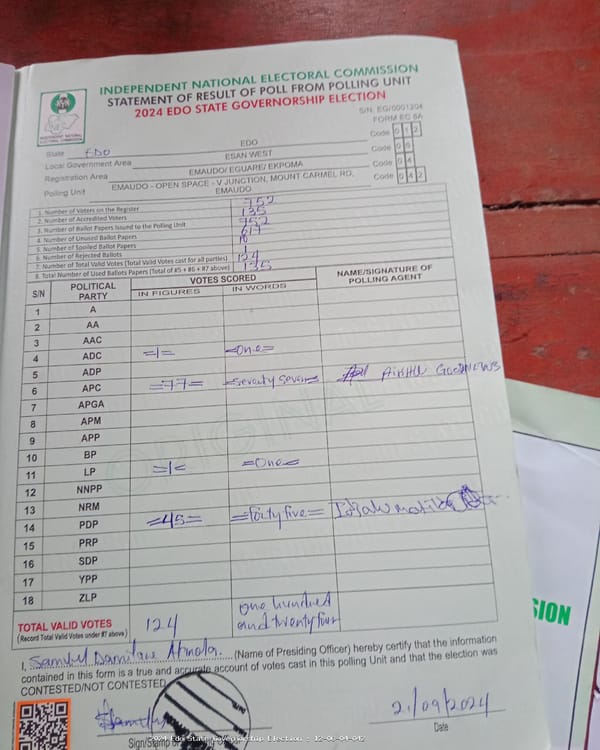 INDEPENDENT NATIONAL ELECTORAL COMMISSION
STATEMENT OF RESULT OF POLL FROM POLLING UNIT
2024 EDO STATE GOVERNORSHIP ELECTION
S/N: EG/0001204
FORM EC 8A
INDEPENDENT NATIONAL ELECTORAL COMMISSION
State EDO EDO Code 0 1 2
Local Government Area ESAN WEST Code 0 6
Registration Area EMAUDO/ EGUARE/ EKPOMA Code 0 4
Polling Unit EMAUDO - OPEN SPACE - V JUNCTION, MOUNT CARMEL RD, EMAUDO Code 0 4 2
1. Number of Voters on the Register 752
2. Number of Accredited Voters 135
3. Number of Ballot Papers Issued to the Polling Unit 752
4. Number of Unused Ballot Papers 617
5. Number of Spoiled Ballot Papers
6. Number of Rejected Ballots
7. Number of Total Valid Votes (Total Valid Votes cast for all parties) 124
8. Total Number of Used Ballots Papers (Total of #5 + #6 + #7 above) 135
S/N POLITICAL PARTY VOTES SCORED NAME/SIGNATURE OF POLLING AGENT
IN FIGURES IN WORDS
1 A
2 AA
3 AAC
4 ADC =1= =One=
5 ADP
6 APC =77= =Seventy seven=
7 APGA
8 APM
9 APP
10 BP
11 LP =1= =One=
12 NNPP
13 NRM
14 PDP =45= =forty five=
15 PRP
16 SDP
17 YPP
18 ZLP
ORIGINAL
TOTAL VALID VOTES 124 one hundred and twenty four
(Record Total Valid Votes under #7 above)
I, Samuel Damilare (Name of Presiding Officer) hereby certify that the information
contained in this form is a true and accurate account of votes cast in this polling Unit and that the election was
CONTESTED/NOT CONTESTED
21/09/2024
Sign/Stamp of
Date
2024 Edo State Governorship Election - 12-06-04-042
SION